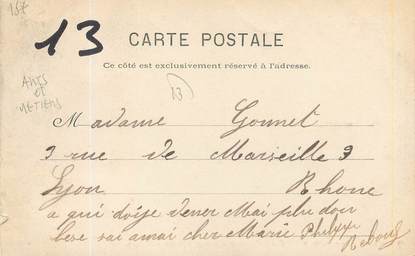 15€
13
CARTE POSTALE
Ce côté est exclusivement réservé à l'adresse.
ARTS
et
METIERS
13
Madame Gonnet
3 rue de Marseille 3
Lyon Rhone
a qui doije Mai plu
cher Marie